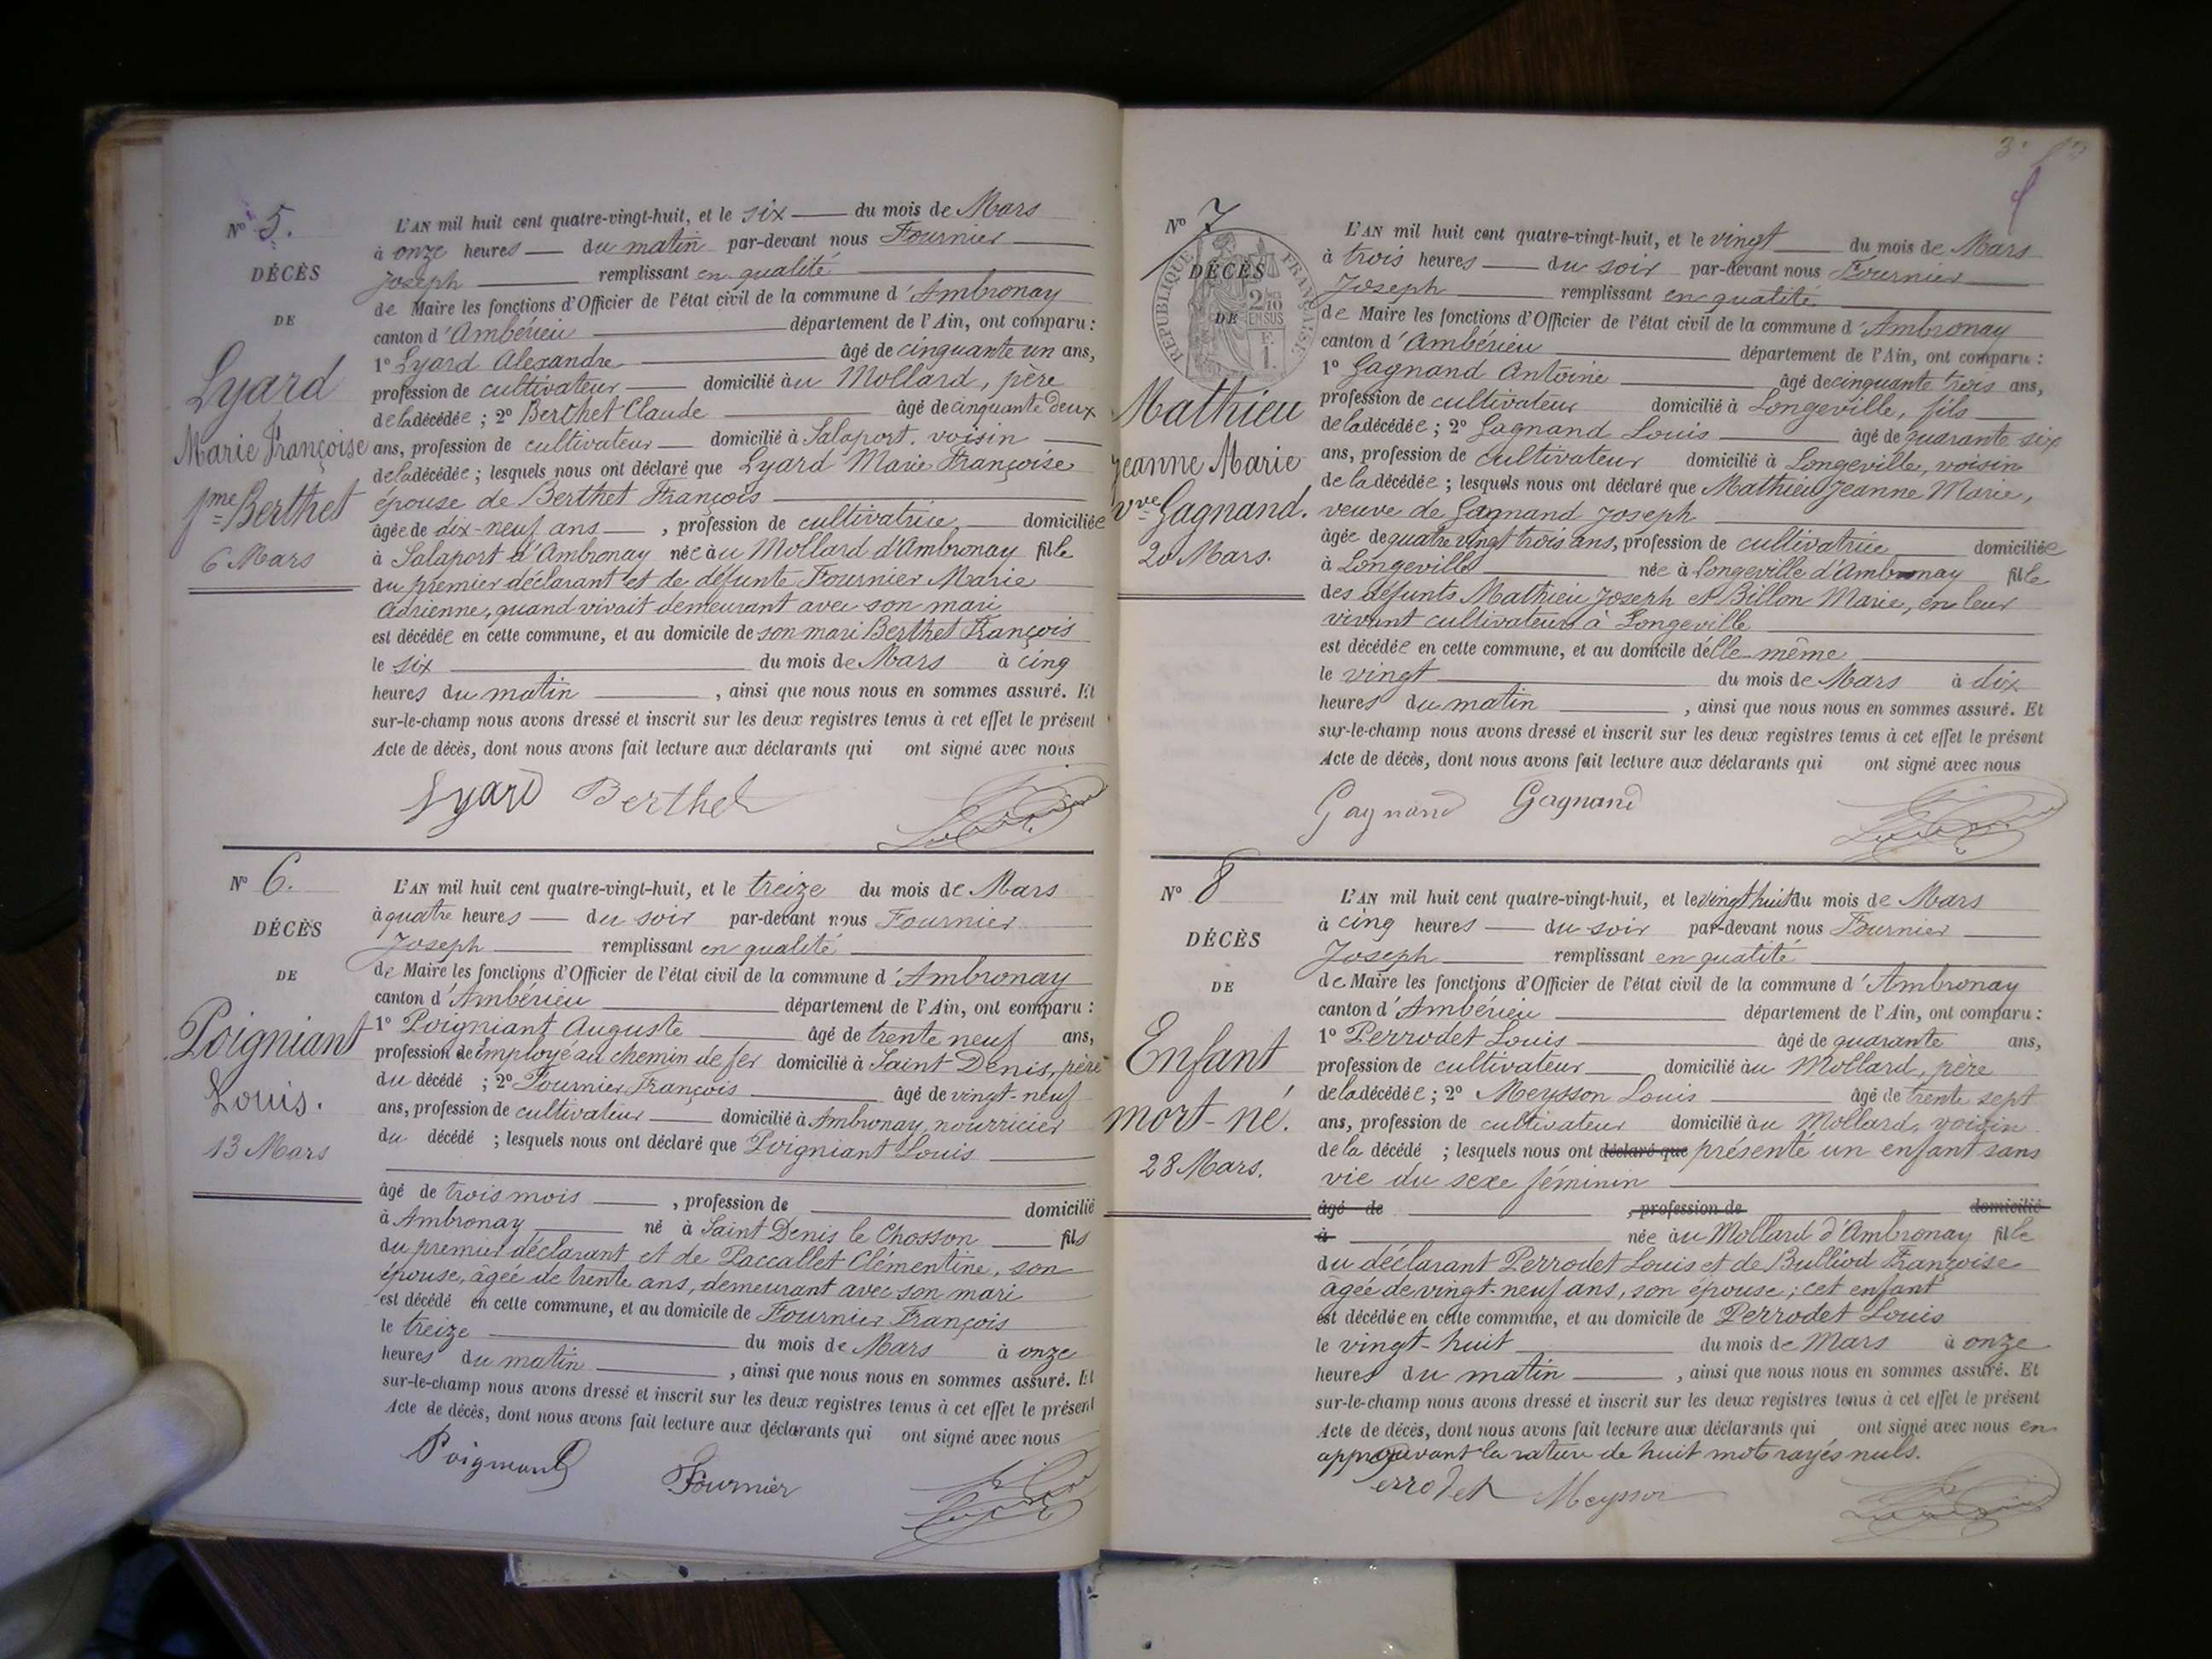 N° 5.
DÉCÈS
DE
Lyard
Marie Françoise
fme Berthet
6 Mars
L'AN mil huit cent quatre-vingt-huit, et le six du mois de Mars
à onze heures du matin par-devant nous Fournier
Joseph remplissant en qualité
de Maire les fonctions d'Officier de l'état civil de la commune d'Ambronay
canton d'Ambérieu département de l'Ain, ont comparu :
1° Lyard Alexandre âgé de cinquante un ans,
profession de cultivateur domicilié au Mollard, père
de la décédée ; 2° Berthet Claude âgé de cinquante deux
ans, profession de cultivateur domicilié à Salaport. voisin
de la décédée ; lesquels nous ont déclaré que Lyard Marie Françoise
épouse de Berthet François
âgée de dix-neuf ans , profession de cultivatrice domiciliée
à Salaport d'Ambronay née au Mollard d'Ambronay fille
du premier déclarant et de défunte Fournier Marie
Adrienne, quand vivait demeurant avec son mari
est décédée en cette commune, et au domicile de son mari Berthet François
le six du mois de Mars à cinq
heures du matin , ainsi que nous nous en sommes assuré. Et
sur-le-champ nous avons dressé et inscrit sur les deux registres tenus à cet effet le présent
Acte de décès, dont nous avons fait lecture aux déclarants qui ont signé avec nous
Lyard Berthet
N° 6.
DÉCÈS
DE
Poigniant
Louis.
13 Mars
L'AN mil huit cent quatre-vingt-huit, et le treize du mois de Mars
à quatre heures du soir par-devant nous Fournier
Joseph remplissant en qualité
de Maire les fonctions d'Officier de l'état civil de la commune d'Ambronay
canton d'Ambérieu département de l'Ain, ont comparu :
1° Poigniant Auguste âgé de trente neuf ans,
profession de employé au chemin de fer domicilié à Saint Denis, père
du décédé ; 2° Fournier François âgé de vingt-neuf
ans, profession de cultivateur domicilié à Ambronay, nourricier
du décédé ; lesquels nous ont déclaré que Poigniant Louis
âgé de trois mois , profession de domicilié
à Ambronay né à Saint Denis le Chosson fils
du premier déclarant et de Paccallet Clémentine, son
épouse, âgée de trente ans, demeurant avec son mari
est décédé en cette commune, et au domicile de Fournier François
le treize du mois de Mars à onze
heures du matin , ainsi que nous nous en sommes assuré. Et
sur-le-champ nous avons dressé et inscrit sur les deux registres tenus à cet effet le présent
Acte de décès, dont nous avons fait lecture aux déclarants qui ont signé avec nous
Poigniant Fournier
3
N° 7
DÉCÈS
DE
RÉPUBLIQUE FRANÇAISE
2/10 EN SUS
F. 1.
Mathieu
Jeanne Marie
vve Gagnand.
20 Mars.
L'AN mil huit cent quatre-vingt-huit, et le vingt du mois de Mars
à trois heures du soir par-devant nous Fournier
Joseph remplissant en qualité
de Maire les fonctions d'Officier de l'état civil de la commune d'Ambronay
canton d'Ambérieu département de l'Ain, ont comparu :
1° Gagnand Antoine âgé de cinquante trois ans,
profession de cultivateur domicilié à Longeville, fils
de la décédée ; 2° Gagnand Louis âgé de quarante six
ans, profession de cultivateur domicilié à Longeville, voisin
de la décédée ; lesquels nous ont déclaré que Mathieu Jeanne Marie,
veuve de Gagnand Joseph
âgée de quatre vingt trois ans, profession de cultivatrice domiciliée
à Longeville née à Longeville d'Ambronay fille
des défunts Mathieu Joseph et Billon Marie, en leur
vivant cultivateurs à Longeville
est décédée en cette commune, et au domicile d'elle-même
le vingt du mois de Mars à dix
heures du matin , ainsi que nous nous en sommes assuré. Et
sur-le-champ nous avons dressé et inscrit sur les deux registres tenus à cet effet le présent
Acte de décès, dont nous avons fait lecture aux déclarants qui ont signé avec nous
Gagnand Gagnand
N° 8
DÉCÈS
DE
Enfant
mort-né.
28 Mars.
L'AN mil huit cent quatre-vingt-huit, et le vingt huit du mois de Mars
à cinq heures du soir par-devant nous Fournier
Joseph remplissant en qualité
de Maire les fonctions d'Officier de l'état civil de la commune d'Ambronay
canton d'Ambérieu département de l'Ain, ont comparu :
1° Perrodet Louis âgé de quarante ans,
profession de cultivateur domicilié au Mollard, père
de la décédée ; 2° Meysson Louis âgé de trente sept
ans, profession de cultivateur domicilié au Mollard, voisin
de la décédé ; lesquels nous ont déclaré que présenté un enfant sans
vie du sexe féminin
âgé de , profession de domicilié
à née au Mollard d'Ambronay fille
du déclarant Perrodet Louis et de Bulliod Françoise
âgée de vingt-neuf ans, son épouse ; cet enfant
est décédée en cette commune, et au domicile de Perrodet Louis
le vingt-huit du mois de Mars à onze
heures du matin , ainsi que nous nous en sommes assuré. Et
sur-le-champ nous avons dressé et inscrit sur les deux registres tenus à cet effet le présent
Acte de décès, dont nous avons fait lecture aux déclarants qui ont signé avec nous en
approuvant la rature de huit mots rayés nuls.
Perrodet Meysson